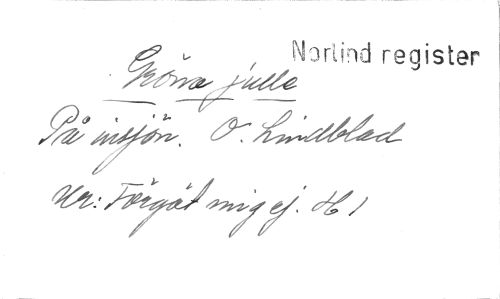 Norlind register
Gröna julle
På insjön. O. Lindblad
Ur: Förgät mig ej. H 1